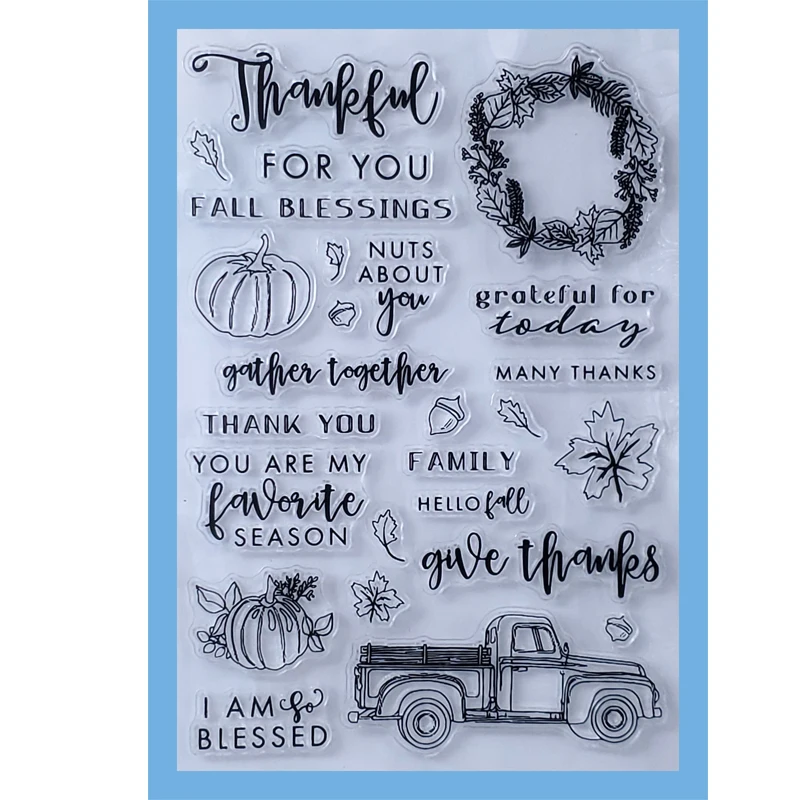 Thankful
FOR YOU
FALL BLESSINGS
NUTS
ABOUT
you
grateful for
today
gather together
MANY THANKS
THANK YOU
YOU ARE MY
favorite
SEASON
FAMILY
HELLO fall
give thanks
I AM so
BLESSED